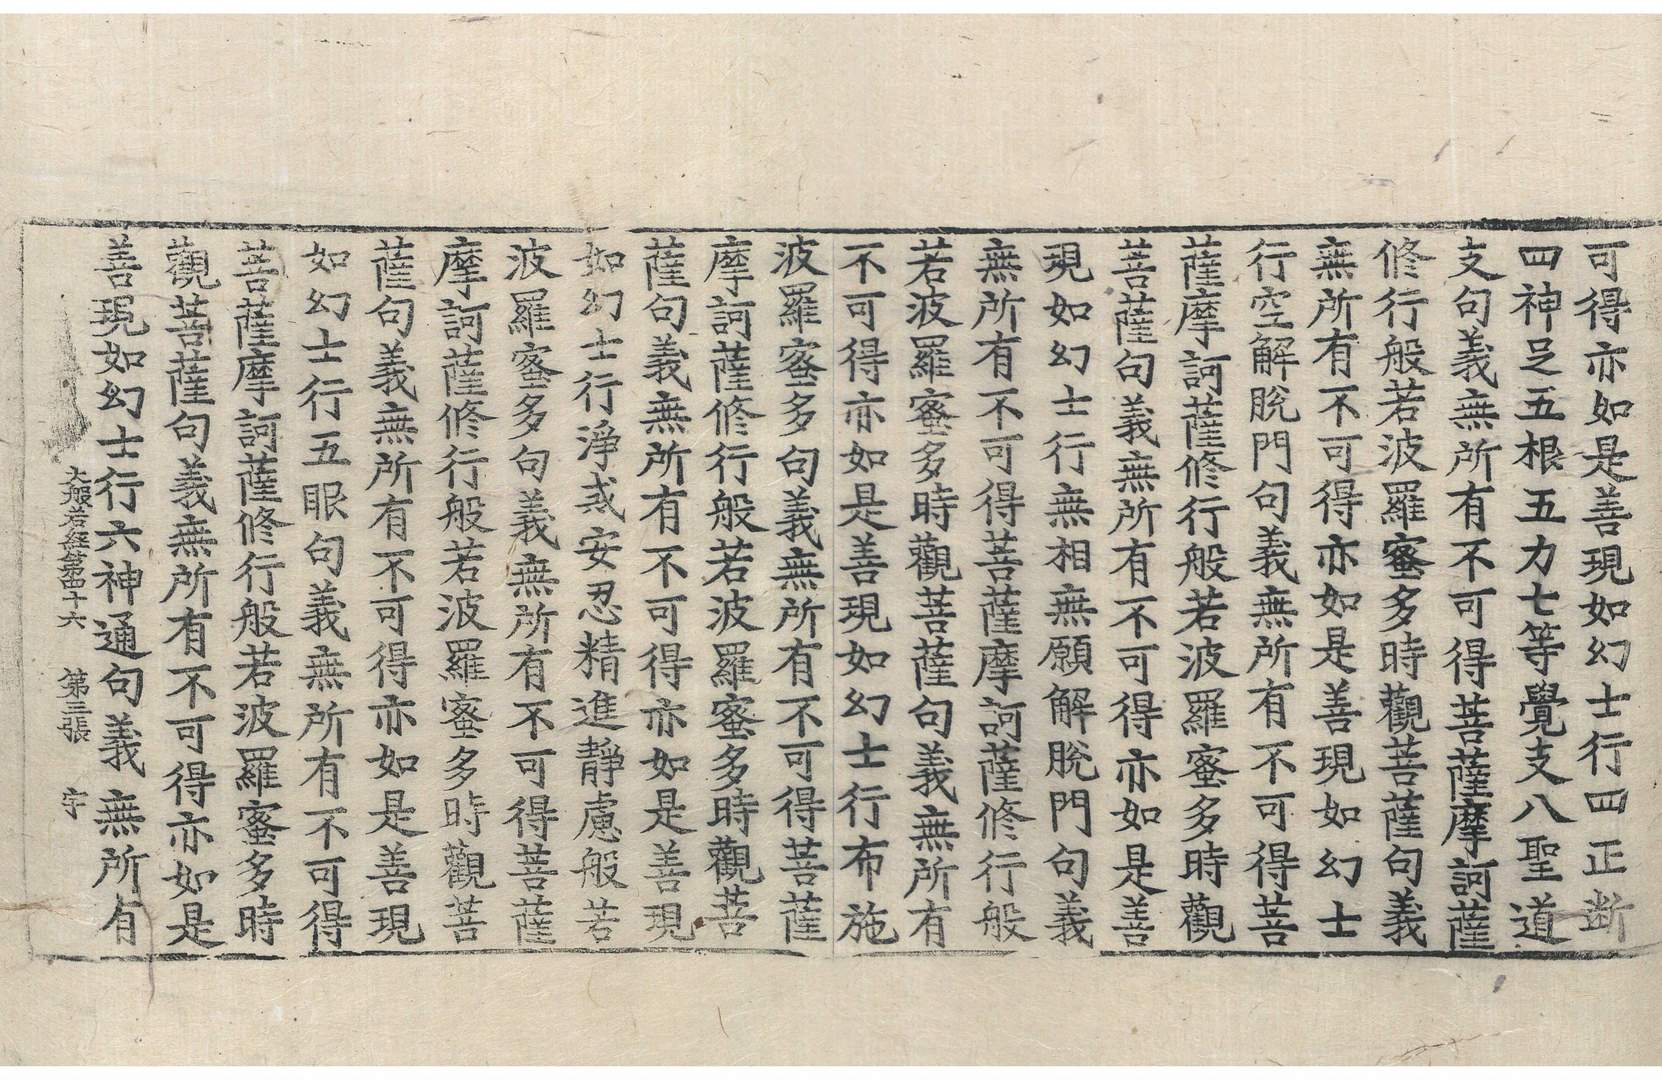 可得亦如是善現如幻士行四正断
四神足五根五力七等覺支八聖道
支句義無所有不可得菩薩摩訶薩
修行般若波羅蜜多時觀菩薩句義
無所有不可得亦如是善現如幻士
行空解脫門句義無所有不可得菩
薩摩訶薩修行般若波羅蜜多時觀
菩薩句義無所有不可得亦如是善
現如幻士行無相無願解脫門句義
無所有不可得菩薩摩訶薩修行般
若波羅蜜多時觀菩薩句義無所有
不可得亦如是善現如幻士行布施
波羅蜜多句義無所有不可得菩薩
摩訶薩修行般若波羅蜜多時觀菩
薩句義無所有不可得亦如是善現
如幻士行淨戒安忍精進靜慮般若
波羅蜜多句義無所有不可得菩薩
摩訶薩修行般若波羅蜜多時觀菩
薩句義無所有不可得亦如是善現
如幻士行五眼句義無所有不可得
菩薩摩訶薩修行般若波羅蜜多時
觀菩薩句義無所有不可得亦如是
善現如幻士行六神通句義無所有
大般若經第四十六 第三張 宇